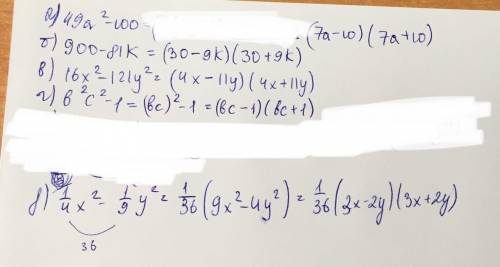 а) 49a²-100 = (7a-10)(7a+10)
б) 900-81k = (30-9k)(30+9k)
в) 16x²-121y² = (4x-11y)(4x+11y)
г) b²c²-1 = (bc)²-1 = (bc-1)(bc+1)
д) 1/4 x² - 1/9 y² = 1/36 (9x²-4y²) = 1/36 (3x-2y)(3x+2y)
36